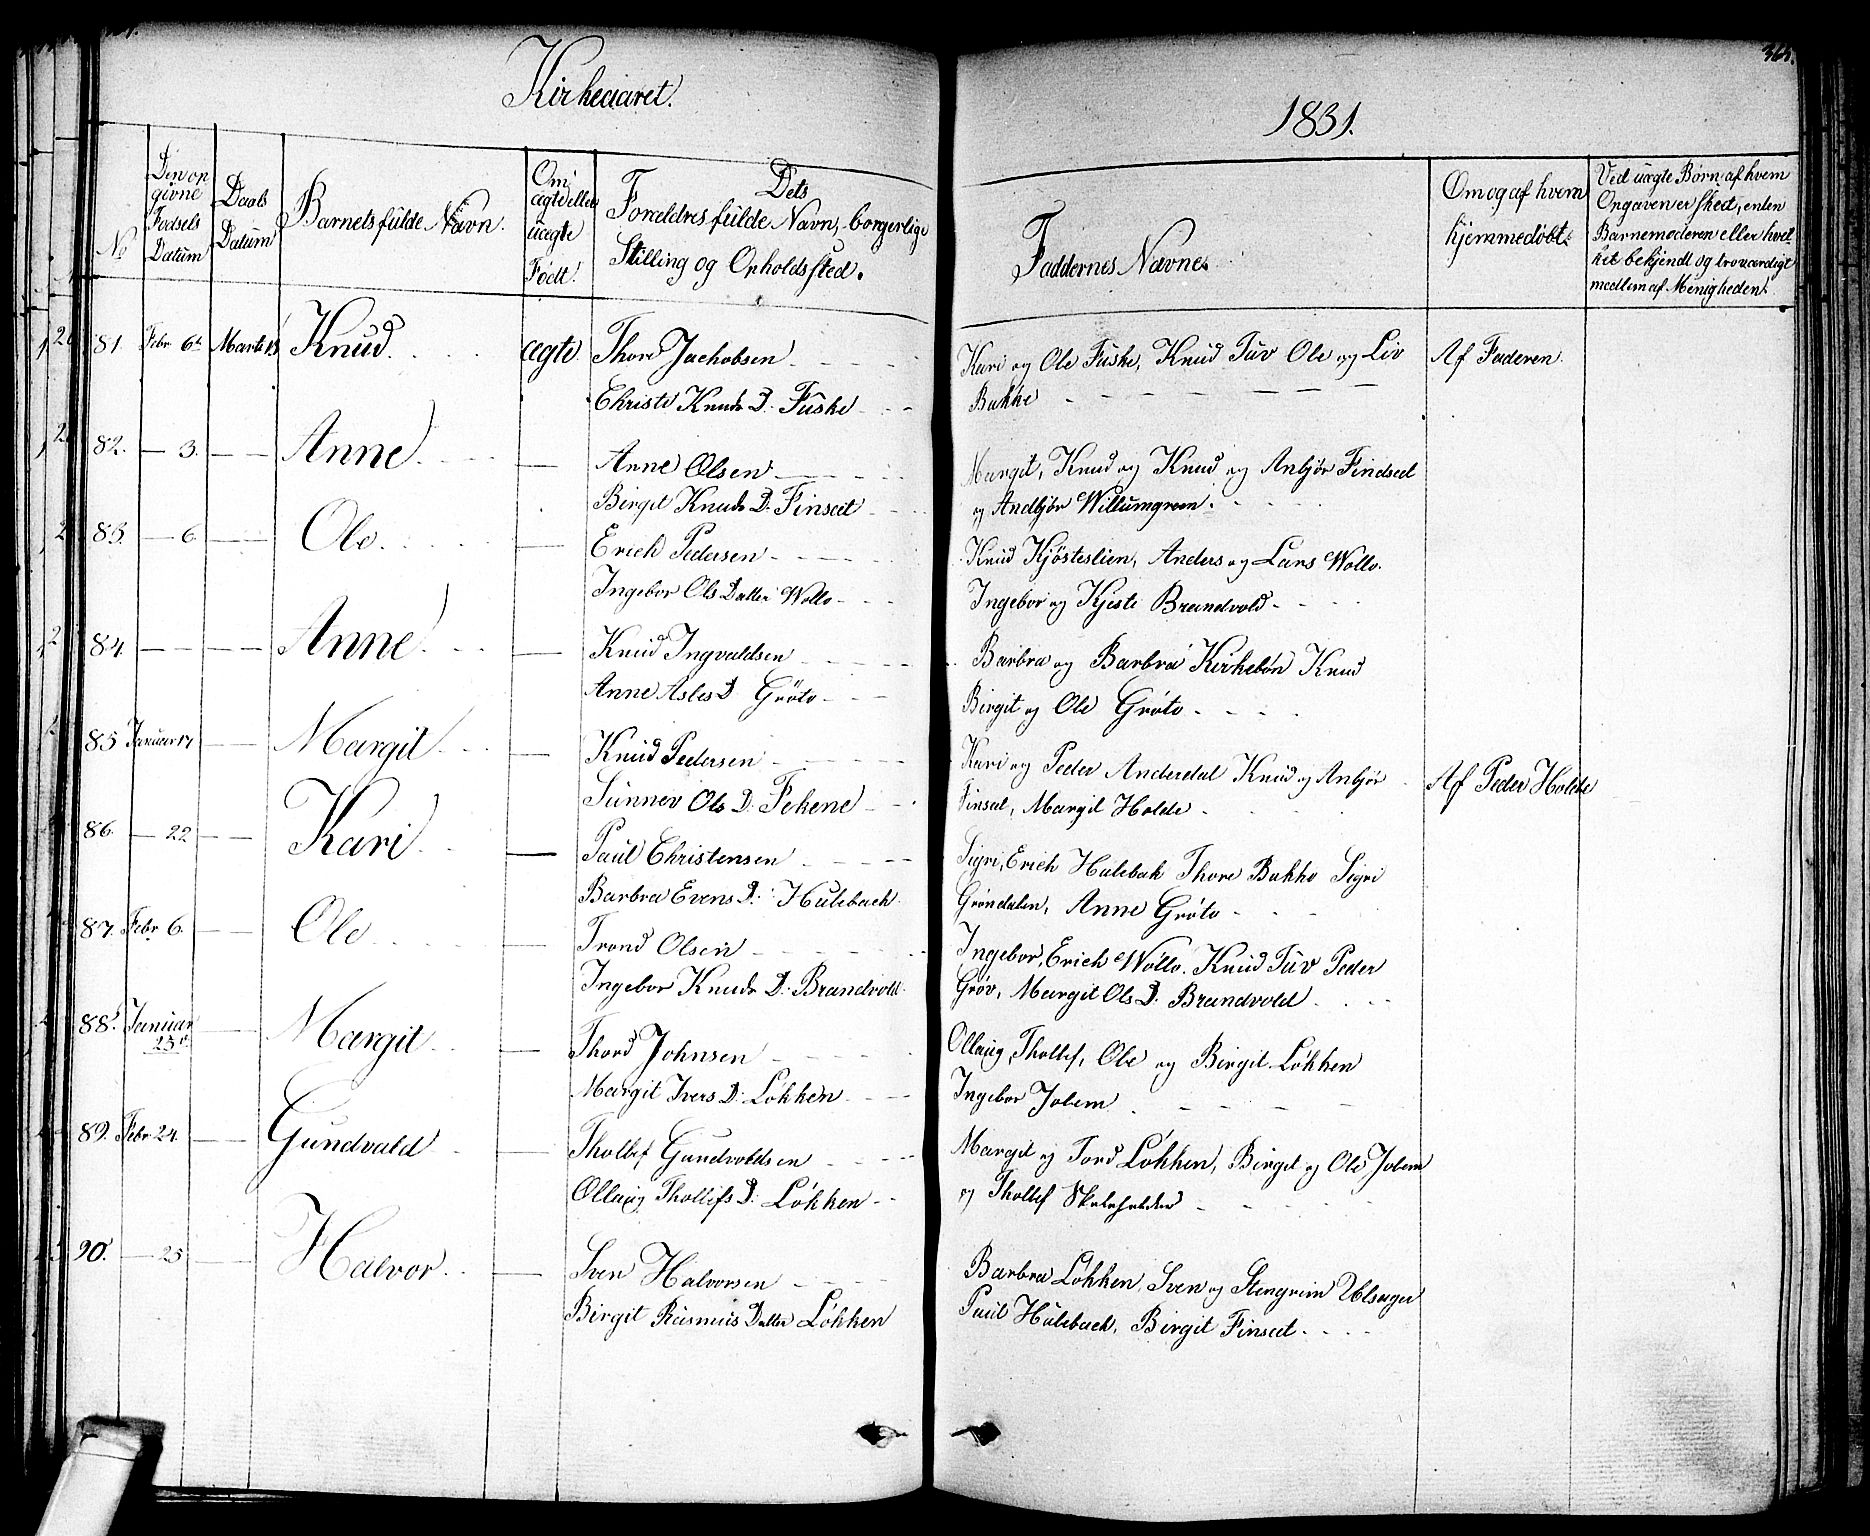 Kirkeaaret.
1831.
365.
No
Den op
givne
Fødsels
Datum
Daabs
Datum
Barnets fulde Navn.
Om
ægte eller
uægte
Født.
Dets
Forældres fulde Navn, borgerlige
Stilling og Opholdssted.
Faddernes Navne.
Om og af hvem
hjemmedøbt.
Ved uægte Børn af hvem
Opgaven er skeet, enten
Barnemoderen eller hvil
ket bekjendt og troværdigt
medlem af Menigheden.
81. Febr 6te Marts 13 Knud. ægte Thore Jachobsen
Christi Knuds D. Fuske
Kari og Ole Fuske, Knud Tuv Ole og Liv
Bakke
Af Faderen.
82. — 3. — Anne — Arne Olsen
Birgit Knuds D. Finset
Margit, Knud og Knud og Anbjør Findset
og Andbjør Willumgreen.
83. — 6 — Ole — Erich Pedersen
Ingebor Ols Datter Wollo
Knud Kjösteslien, Anders og Lars Wollo.
Ingebor og Kjesti Brandvold
84. — — Anne — Knud Ingvaldsen
Anne Asles D Gröto
Barbra og Barbra Kirkebøn Knud
Birgit og Ole Gröto
85 Januar 17 — Margit — Knud Pedersen
Sunnev Ols D. Fekene
Kari og Peder Anderdal Knud og Anbjör
Finset, Margit Holde
Af Peder Holde
86. — 22 — Kari — Paul Christensen
Barbra Evens D. Hulebach
Sigri, Erich Hulebak Thore Bakko Sigri
Gröndalen, Anne Gröto
87. Febr 6. — Ole — Trond Olsen
Ingebor Knuds D. Brandvold
Ingebor, Erich Wöllo. Knud Tuv Peder
Gröv, Margit Ols D. Brandvold
88. Januar — Margit — Thord Johnsen
23de
Margit Ivers D. Løkken
Ollaug, Thollef, Ole og Birgit Løkken
Ingebor Jolem
89. Febr 24. — Gundvald — Thollef Gundvaldsen
Ollaug Thollefs D. Løkken
Margit og Tord Løkken, Birgit og Ole Jolem
og Thollef
90. — 25 — Halvor — Sven Halvorsen
Birgit Rasmus Datter Løkken
Barbra Løkken, Sven og Stengrim Ulsager
Paul Hulebach, Birgit Finset